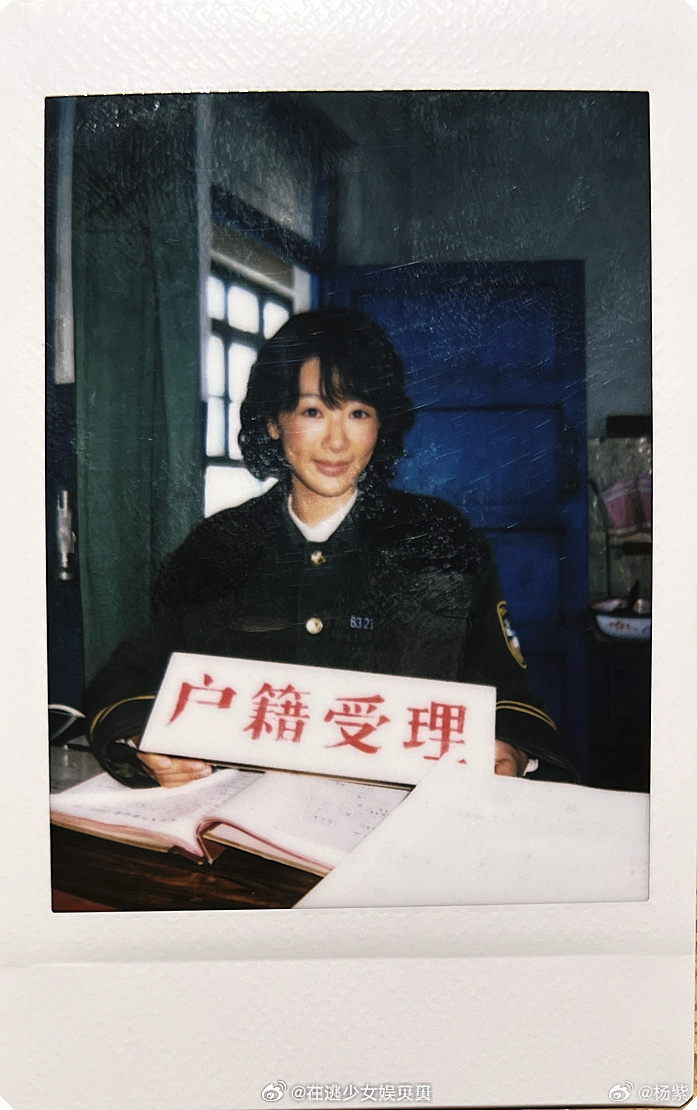 6321
户籍受理
@在逃少女娱贝贝
@杨紫